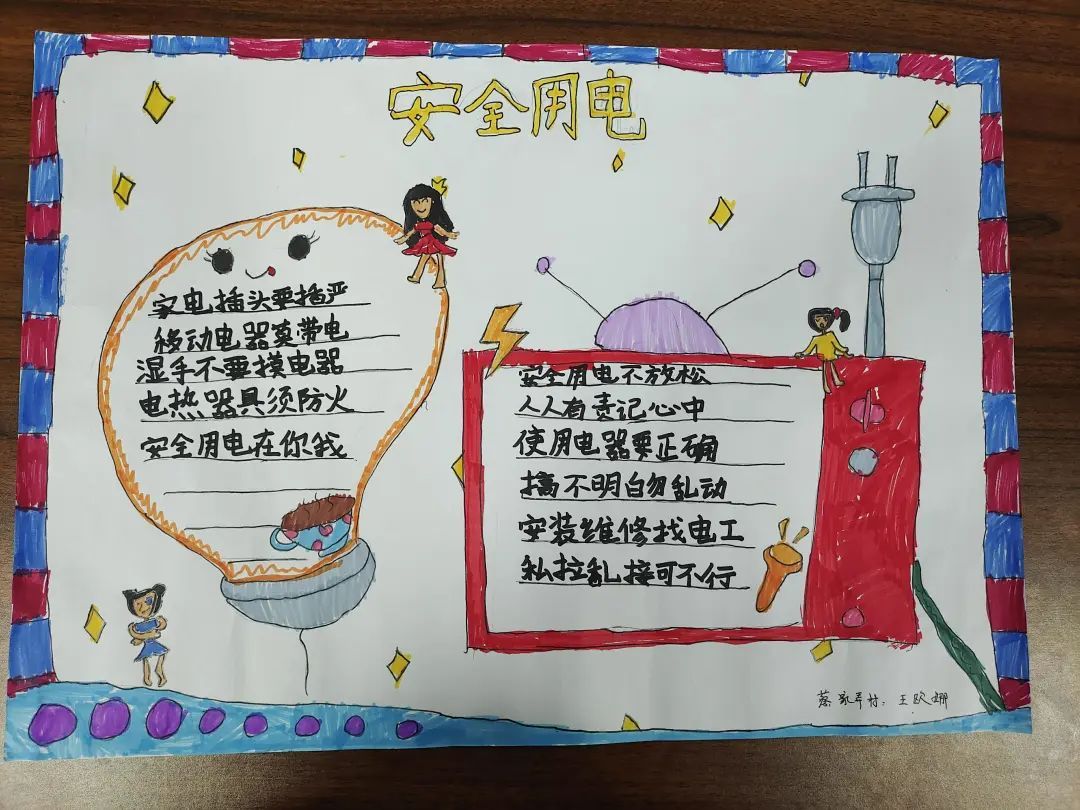 安全用电
家电插头要插严
移动电器莫带电
湿手不要摸电器
电热器具须防火
安全用电在你我
安全用电不放松
人人有责记心中
使用电器要正确
搞不明白勿乱动
安装维修找电工
私拉乱接可不行
蔡家弄村:王欧姗